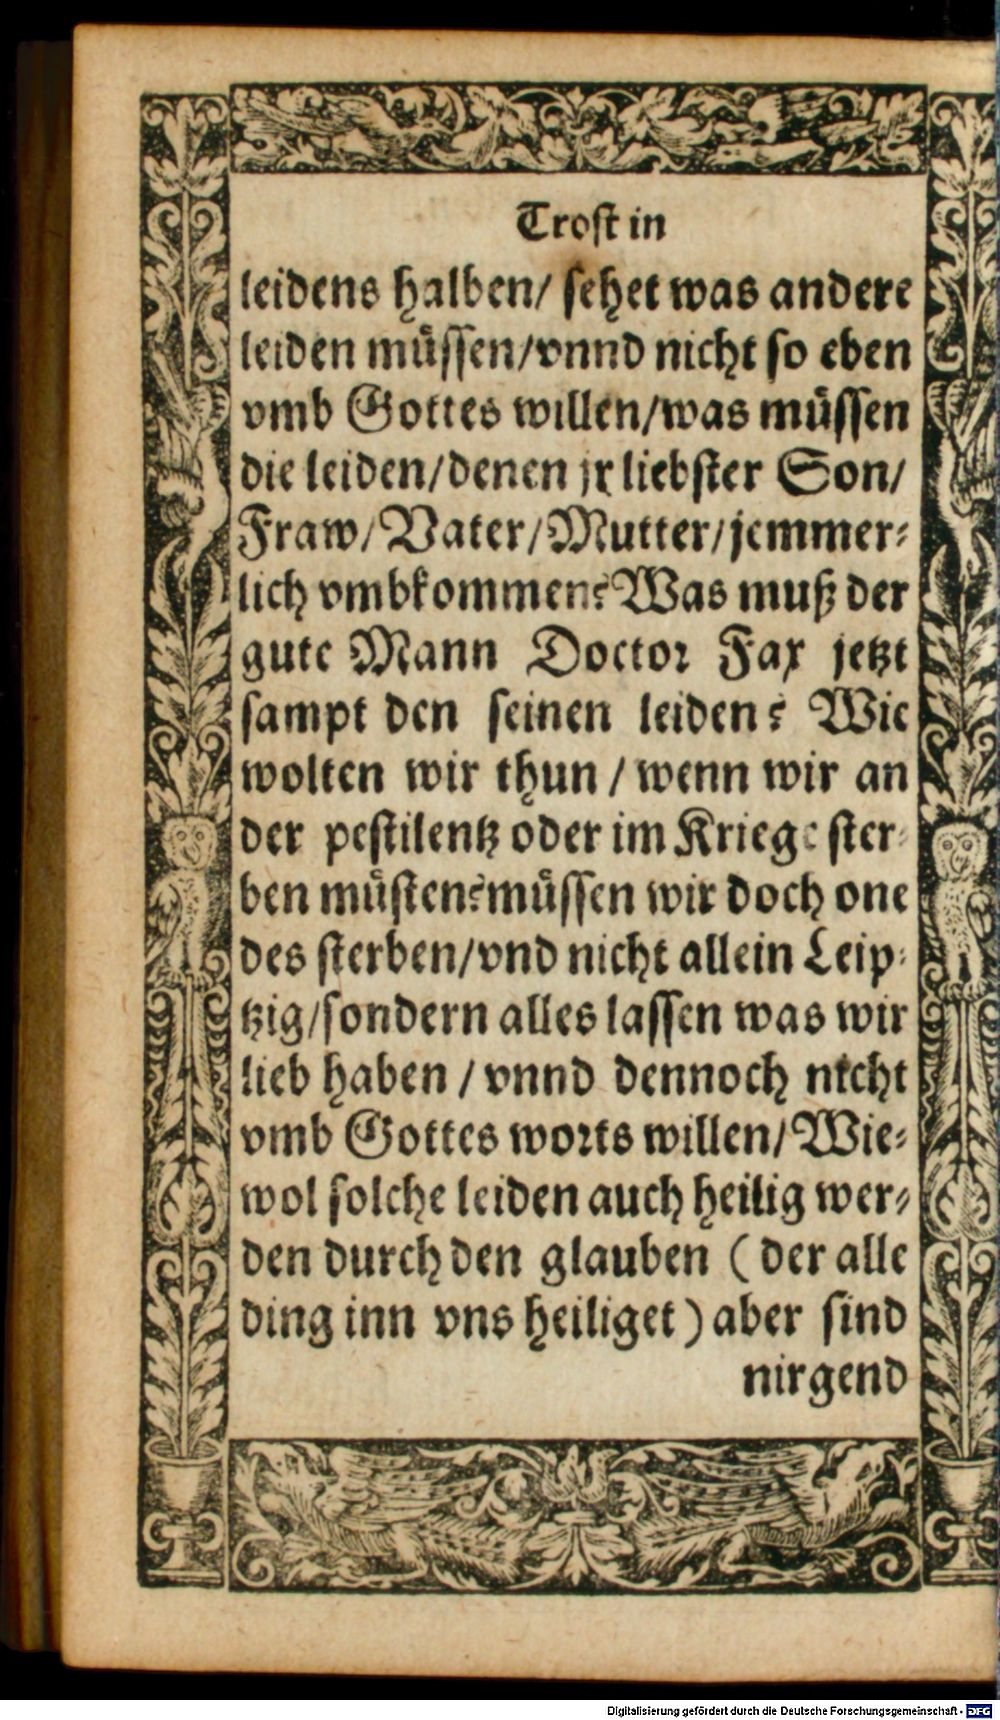 Trost in
leidens halben/ sehet was andere
leiden müssen/vnnd nicht so eben
vmb Gottes willen/was müssen
die leiden/denen jr liebster Son/
Fraw/Vater/Mutter/jemmer-
lich vmbkommen? Was muß der
gute Mann Doctor Fax jetzt
sampt den seinen leiden? Wie
wolten wir thun / wenn wir an
der pestilentz oder im Kriege ster-
ben müsten? müssen wir doch one
des sterben/vnd nicht allein Leip-
tzig/sondern alles lassen was wir
lieb haben / vnnd dennoch nicht
vmb Gottes worts willen/Wie-
wol solche leiden auch heilig wer-
den durch den glauben (der alle
ding inn vns heiliget) aber sind
nirgend
Digitalisierung gefördert durch die Deutsche Forschungsgemeinschaft - DFG